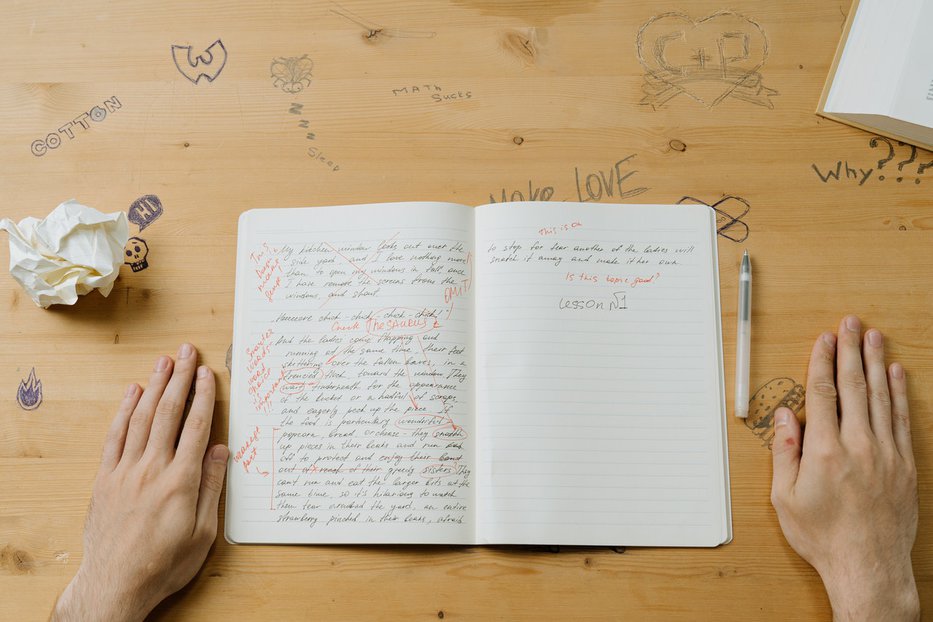 COTTON
W
Z
Z
Z
Sleep
MATH
Sucks
C+P
Why???
HI
Make LOVE
My kitchen window looks out over the
side yard and I love nothing more
than to open my windows in fall, once
I have remove the screens from the
windows, and shout.
OMIT!
chick-chick-chick-chick!
Check Thesaurus
And the ladies come flapping and
running at the same time, their feet
skittering over the fallen leaves, in a
frenzied flock toward the window. They
wait underneath for the appearance
of the bucket or a handful of scraps,
and eagerly peck up the piece. If
the food is particulary wonderful
popcorn, bread, or cheese - they snatch
up pieces in their beaks and run
off to protect and enjoy their
out of reach of their greedy sisters. They
can't run and eat the larger bits at the
same time, so it's hilarious to watch
them tear around the yard, an entire
strawberry pinched in their beaks, afraid
Smaller
words
important!!!
weakest
part
This is a
to stop for fear another of the ladies will
snatch it away and make it her own.
Is this topic good?
Lesson №1